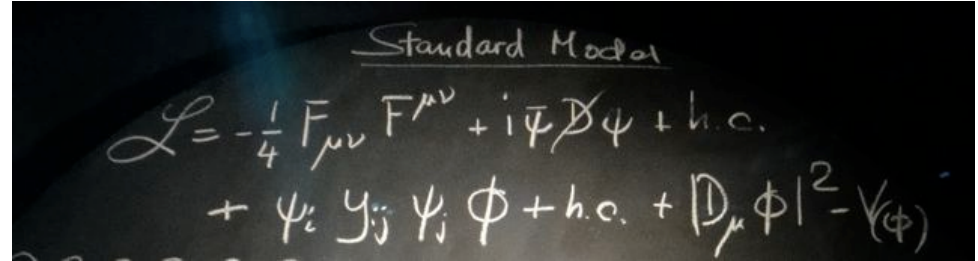 Standard Model
ℒ = -¼ F_μν F^μν + i ψ̄ D̸ ψ + h.c.
+ ψ_i y_ij ψ_j ϕ + h.c. + |D_μ ϕ|² - V(ϕ)